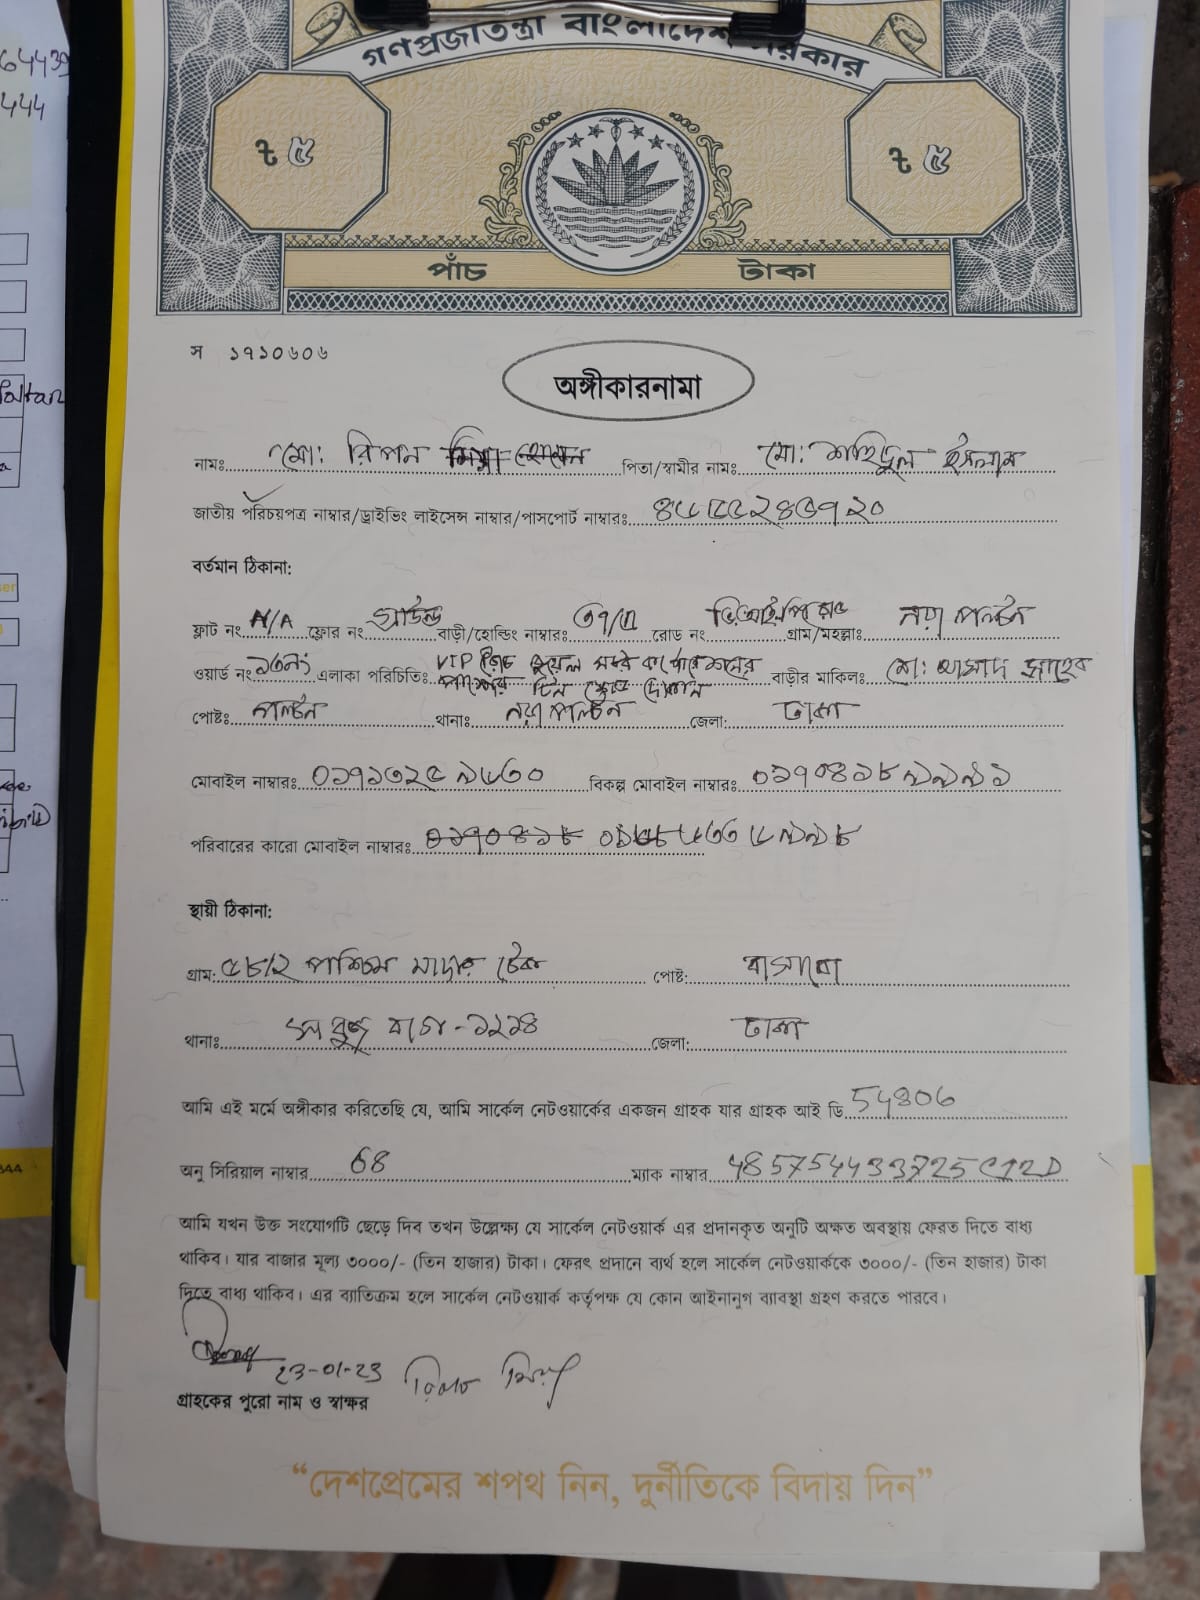 64439
444
গণপ্রজাতন্ত্রী বাংলাদেশ সরকার
৳ ৫ ৳ ৫
পাঁচ টাকা
স ১৭১০৬০৬
অঙ্গীকারনামা
নামঃ মো: রিপন মিয়া হোসেন পিতা/স্বামীর নামঃ মো: শহিদুল ইসলাম
জাতীয় পরিচয়পত্র নাম্বার/ড্রাইভিং লাইসেন্স নাম্বার/পাসপোর্ট নাম্বারঃ
বর্তমান ঠিকানা:
ফ্লাট নং N/A ফ্লোর নং গ্রাউন্ড বাড়ী/হোল্ডিং নাম্বারঃ রোড নং ভিআইপি রোড গ্রাম/মহল্লাঃ নয়া পল্টন
ওয়ার্ড নং এলাকা পরিচিতিঃ VIP রোড
পাশের টিন শেড দোকান বাড়ীর মালিকঃ মো: আসাদ সাহেব
পোষ্টঃ পল্টন থানাঃ নয়া পল্টন জেলা: ঢাকা
মোবাইল নাম্বারঃ ০১৭১৩২৫৯৬৩০ বিকল্প মোবাইল নাম্বারঃ ০১৭০৪১৮৯৯৯১
পরিবারের কারো মোবাইল নাম্বারঃ ০১৭০৪১৮
স্থায়ী ঠিকানা:
গ্রাম: ৫৮/২ পশ্চিম মাদার টেক পোষ্ট: বাসাবো
থানাঃ সবুজ বাগ - ১২১৪ জেলা: ঢাকা
আমি এই মর্মে অঙ্গীকার করিতেছি যে, আমি সার্কেল নেটওয়ার্কের একজন গ্রাহক যার গ্রাহক আই ডি
অনু সিরিয়াল নাম্বার 68 ম্যাক নাম্বার
আমি যখন উক্ত সংযোগটি ছেড়ে দিব তখন উল্লেক্ষ্য যে সার্কেল নেটওয়ার্ক এর প্রদানকৃত অনুটি অক্ষত অবস্থায় ফেরত দিতে বাধ্য
থাকিব। যার বাজার মূল্য ৩০০০/- (তিন হাজার) টাকা। ফেরৎ প্রদানে ব্যর্থ হলে সার্কেল নেটওয়ার্ককে ৩০০০/- (তিন হাজার) টাকা
দিতে বাধ্য থাকিব। এর ব্যাতিক্রম হলে সার্কেল নেটওয়ার্ক কর্তৃপক্ষ যে কোন আইনানুগ ব্যাবস্থা গ্রহণ করতে পারবে।
23-01-23 রিপন মিয়া
গ্রাহকের পুরো নাম ও স্বাক্ষর
“দেশপ্রেমের শপথ নিন, দুর্নীতিকে বিদায় দিন”